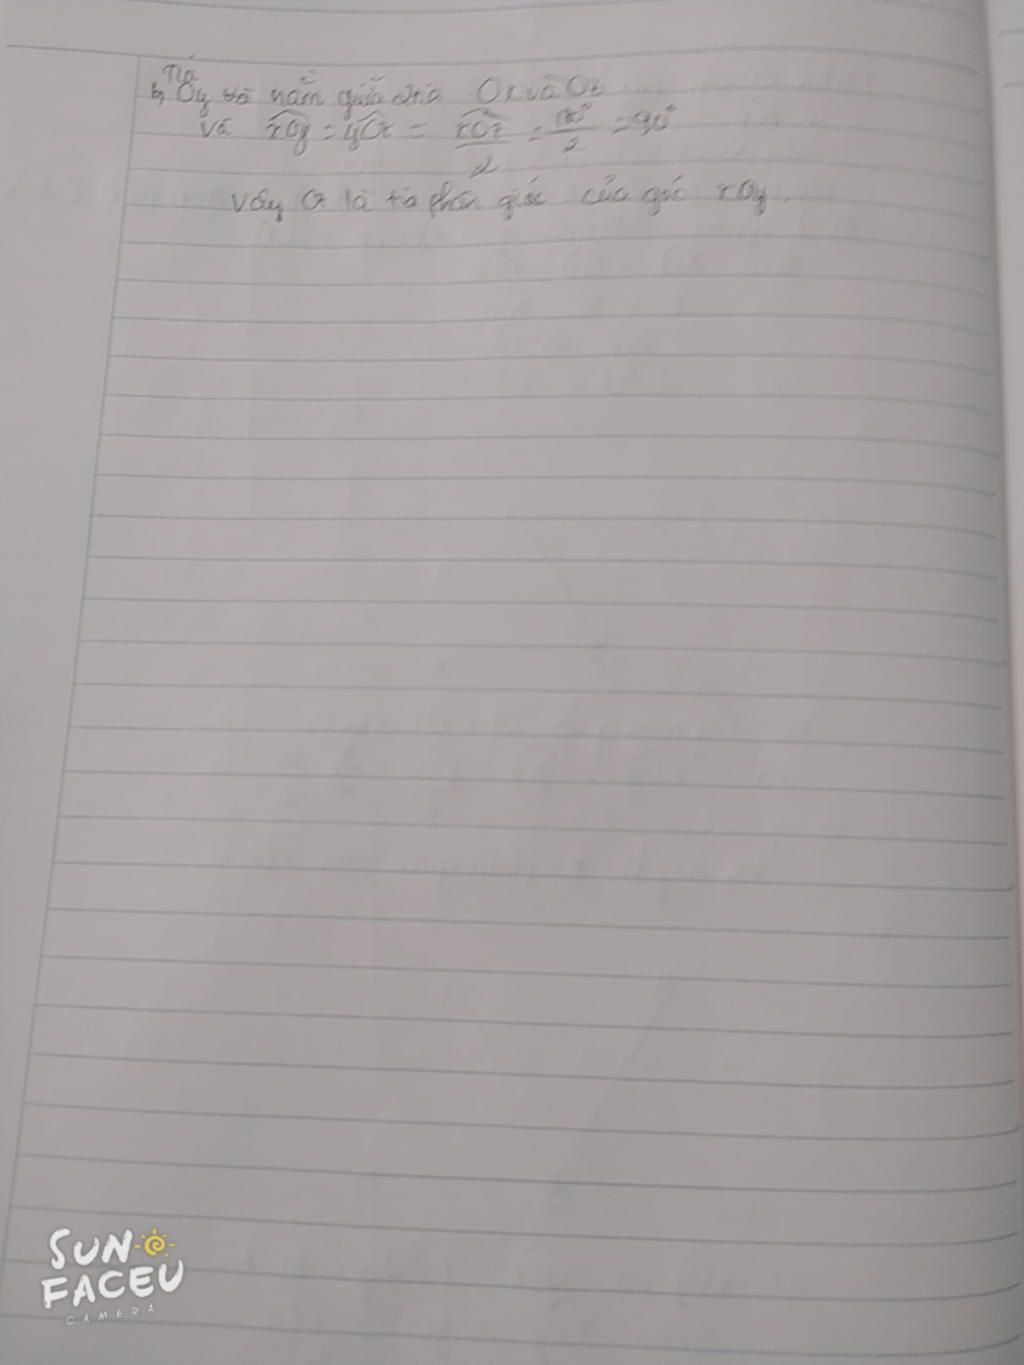 Tia
b, Oy nằm giữa Ox và Oz
và xOy = yOz = xOz/2 = 180°/2 = 90°
Vậy là tia phân giác của góc xOy
SUN
FACEU
CAMERA